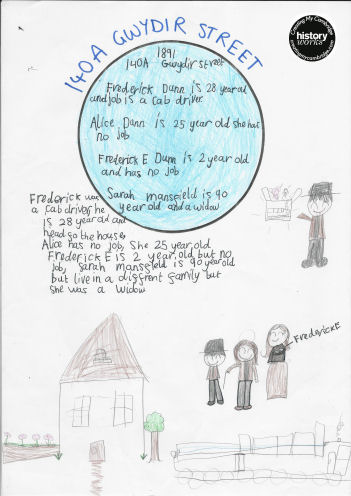 140A GWYDIR STREET
Creating My Cambridge
history works
creatingmycambridge.com
1891
140A Gwydir street
Frederick Dunn is 28 year old
and job is a cab driver
Alice Dann is 25 year old she has
no job
Frederick E Dunn is 2 year old
and has no job
Sarah mansfield is 90
year old and a widow
Frederick was
a cab driver, he
is 28 year old and
head go the house,
Alice has no job, She 25 year old
Frederick E is 2 year old but no
job, Sarah mansfield is 90 year old
but live in a diffrent family but
She was a widow
Frederick E